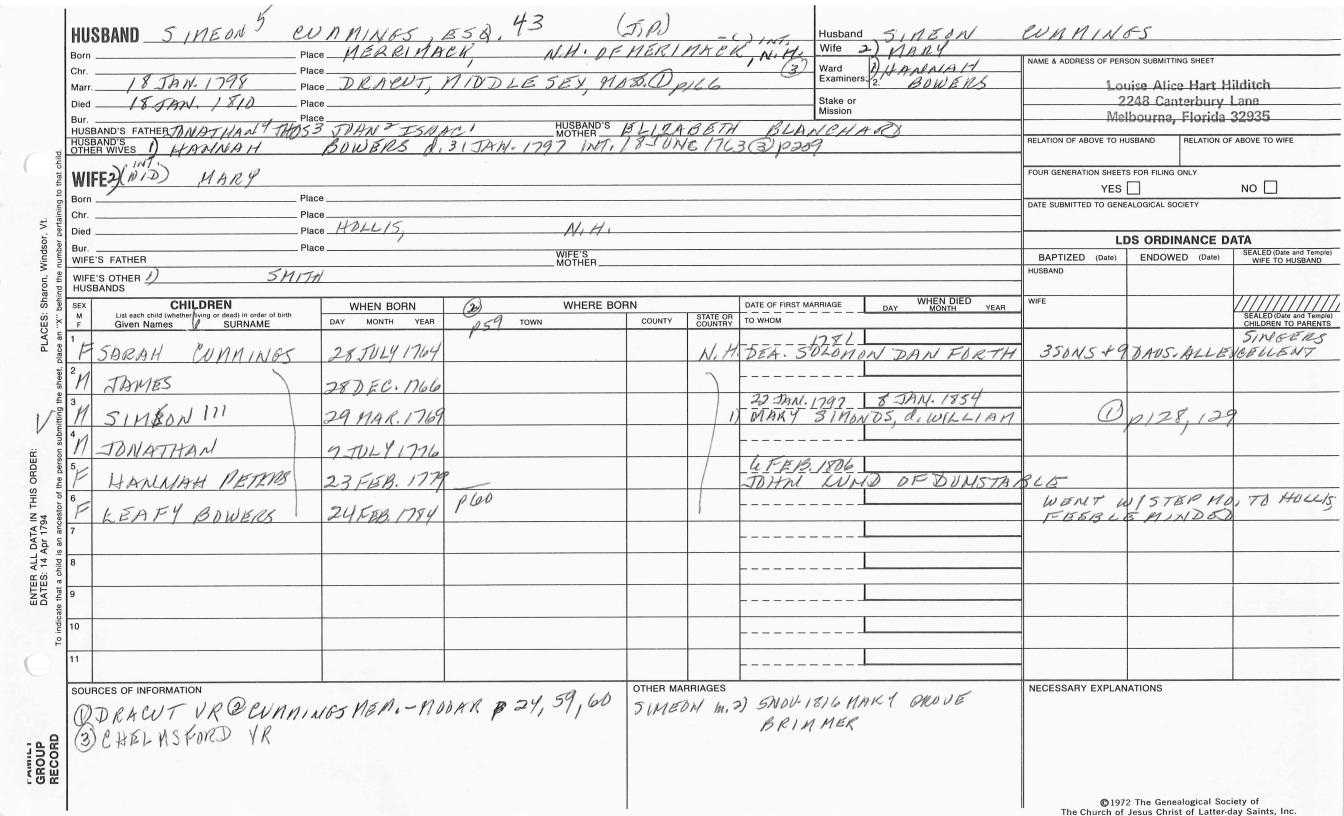 HUSBAND SIMEON 5 CUMMINGS, ESQ. 43 (J.P.)
Born Place MERRIMACK, N.H. OF MERIMACK, N.H. INT. (3)
Chr. Place
Marr. 18 JAN. 1798 Place DRACUT, MIDDLESEX, MASS. (1) p166
Died 18 JAN. 1810 Place
Bur. Place
HUSBAND'S FATHER JONATHAN 4 THOS 3 JOHN 2 ISAAC 1 HUSBAND'S MOTHER ELIZABETH BLANCHARD
HUSBAND'S OTHER WIVES 1) HANNAH BOWERS d. 31 JAN. 1797 INT. 18 JUNE 1763 (3) p209
WIFE 2) INT. (WID) MARY
Born Place
Chr. Place
Died Place HOLLIS, N.H.
Bur. Place
WIFE'S FATHER WIFE'S MOTHER
WIFE'S OTHER HUSBANDS 1) SMITH
Husband SIMEON CUMMINGS
Wife 2) MARY
Ward Examiners: 1) HANNAH
2. BOWERS
Stake or Mission
NAME & ADDRESS OF PERSON SUBMITTING SHEET
Louise Alice Hart Hilditch
2248 Canterbury Lane
Melbourne, Florida 32935
RELATION OF ABOVE TO HUSBAND RELATION OF ABOVE TO WIFE
FOUR GENERATION SHEETS FOR FILING ONLY
YES NO
DATE SUBMITTED TO GENEALOGICAL SOCIETY
LDS ORDINANCE DATA
BAPTIZED (Date) ENDOWED (Date) SEALED (Date and Temple) WIFE TO HUSBAND
HUSBAND
WIFE
SEALED (Date and Temple) CHILDREN TO PARENTS
SEX M F CHILDREN WHEN BORN (2) WHERE BORN DATE OF FIRST MARRIAGE WHEN DIED
List each child (whether living or dead) in order of birth
Given Names SURNAME DAY MONTH YEAR p59 TOWN COUNTY STATE OR COUNTRY TO WHOM DAY MONTH YEAR
1781 SINGERS
1 F SARAH CUMMINGS 28 JULY 1764 N.H. DEA. SOLOMON DANFORTH 3 SONS + 9 DAUS. ALL EXCELLENT
2 M JAMES 28 DEC. 1766
22 JAN. 1797 8 JAN. 1854
3 M SIMEON 111 29 MAR. 1769 1) MARY SIMONDS, d. WILLIAM (1) p128, 129
4 M JONATHAN 9 JULY 1776
6 FEB. 1806
5 F HANNAH PETERS 23 FEB. 1779 JOHN LUND OF DUNSTABLE
6 F LEAFY BOWERS 24 FEB. 1784 p60 WENT W/STEP MO. TO HOLLIS,
FEEBLE MINDED
7
8
9
10
11
SOURCES OF INFORMATION
(1) DRACUT VR (2) CUMMINGS MEM. - MODAR p 24, 59, 60
(3) CHELMSFORD VR
OTHER MARRIAGES
SIMEON m. 2) 5 NOV. 1816 MARY GROVE
BRIMMER
NECESSARY EXPLANATIONS
©1972 The Genealogical Society of
The Church of Jesus Christ of Latter-day Saints, Inc.
ENTER ALL DATA IN THIS ORDER:
DATES: 14 Apr 1794 PLACES: Sharon, Windsor, Vt.
To indicate that a child is an ancestor of the person submitting the sheet, place an "X" behind the number pertaining to that child.
FAMILY GROUP RECORD